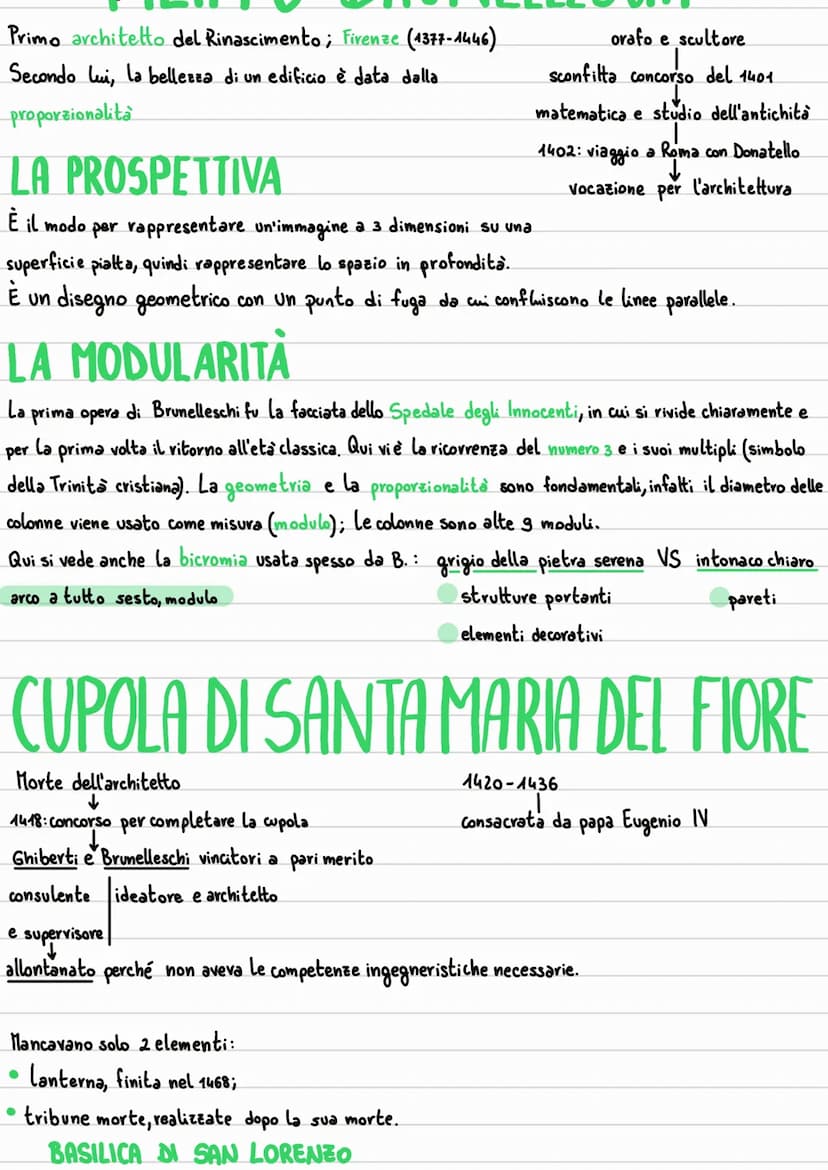 FILIPPO BRUNELLESCHI
Primo architetto del Rinascimento; Firenze (1377-1446)
Secondo lui, la bellezza di un edificio è data dalla
proporzionalità
orafo e scultore
sconfitta concorso del 1401
matematica e studio dell'antichità
1402: viaggio a Roma con Donatello
vocazione per l'architettura
LA PROSPETTIVA
È il modo per rappresentare un'immagine a 3 dimensioni su una
superficie piatta, quindi rappresentare lo spazio in profondità.
È un disegno geometrico con un punto di fuga da cui confluiscono le linee parallele.
LA MODULARITÀ
La prima opera di Brunelleschi fu la facciata dello Spedale degli Innocenti, in cui si rivide chiaramente e
per la prima volta il ritorno all'età classica. Qui vi è la ricorrenza del numero 3 e i suoi multipli (simbolo
della Trinità cristiana). La geometria e la proporzionalità sono fondamentali, infatti il diametro delle
colonne viene usato come misura (modulo); le colonne sono alte 9 moduli.
Qui si vede anche la bicromia usata spesso da B.: grigio della pietra serena VS intonaco chiaro
arco a tutto sesto, modulo
strutture portanti
pareti
elementi decorativi
CUPOLA DI SANTA MARIA DEL FIORE
Morte dell'architetto
1418: concorso per completare la cupola
Ghiberti e Brunelleschi vincitori a pari merito
consulente ideatore e architetto
e supervisore
allontanato perché non aveva le competenze ingegneristiche necessarie.
1420-1436
consacrata da papa Eugenio IV
Mancavano solo 2 elementi:
• lanterna, finita nel 1468;
• tribune morte, realizzate dopo la sua morte.
BASILICA DI SAN LORENZO